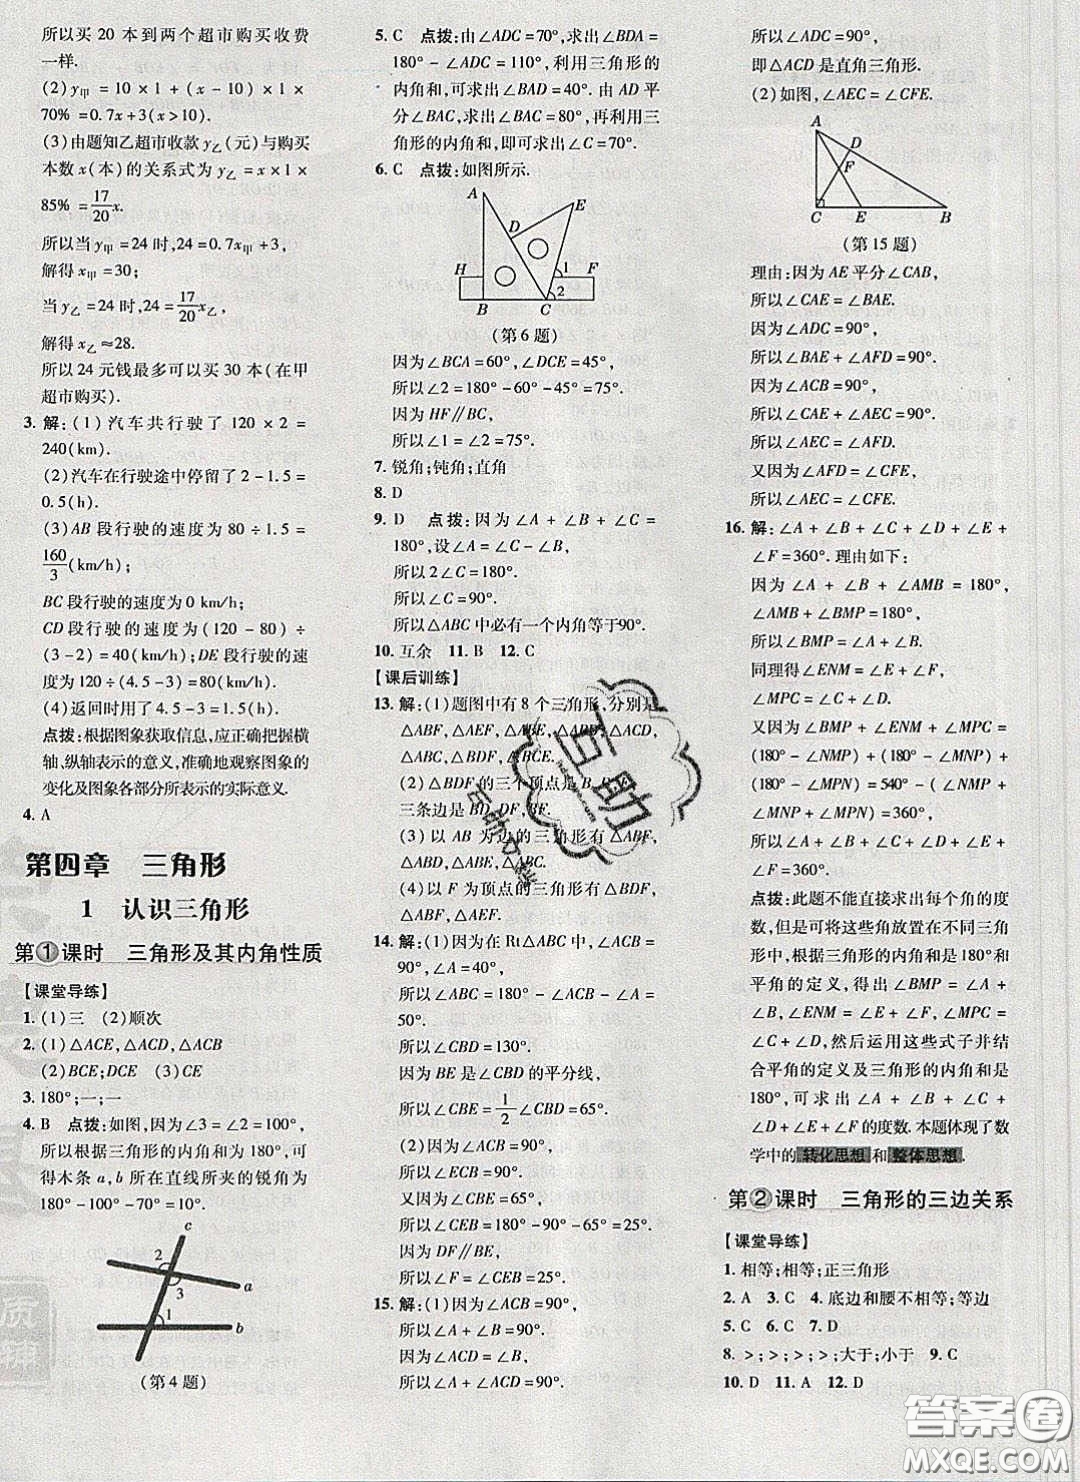 所以买 20 本到两个超市购买收费
一样.
(2)y甲 = 10 × 1 + (x - 10) × 1 ×
70% = 0.7x + 3(x > 10).
(3)由题知乙超市收款 y乙(元)与购买
本数 x(本)的关系式为 y乙 = x × 1 ×
85% = 17/20 x.
所以当 y甲 = 24 时,24 = 0.7x甲 + 3,
解得 x甲 = 30;
当 y乙 = 24 时,24 = 17/20 x乙,
解得 x乙 ≈ 28.
所以 24 元钱最多可以买 30 本(在甲
超市购买).
3. 解:(1)汽车共行驶了 120 × 2 =
240(km).
(2)汽车在行驶途中停留了 2 - 1.5 =
0.5(h).
(3)AB 段行驶的速度为 80 ÷ 1.5 =
160/3(km/h);
BC 段行驶的速度为 0 km/h;
CD 段行驶的速度为(120 - 80) ÷
(3 - 2) = 40(km/h);DE 段行驶的速
度为 120 ÷ (4.5 - 3) = 80(km/h).
(4)返回时用了 4.5 - 3 = 1.5(h).
点拨:根据图象获取信息,应正确把握横
轴、纵轴表示的意义,准确地观察图象的
变化及图象各部分所表示的实际意义.
4. A
第四章 三角形
1 认识三角形
第①课时 三角形及其内角性质
【课堂导练】
1. (1)三 (2)顺次
2. (1)△ACE,△ACD,△ACB
(2)BCE;DCE (3)CE
3. 180°;一;一
4. B 点拨:如图,因为∠3 = ∠2 = 100°,
所以根据三角形的内角和为 180°,可
得木条 a,b 所在直线所夹的锐角为
180° - 100° - 70° = 10°.
c
2
3
a
1
b
(第 4 题)
5. C 点拨:由∠ADC = 70°,求出∠BDA =
180° - ∠ADC = 110°,利用三角形的
内角和,可求出∠BAD = 40°. 由 AD 平
分∠BAC,求出∠BAC = 80°,再利用三
角形的内角和,即可求出∠C = 60°.
6. C 点拨:如图所示.
A
E
D
H
1
F
2
B
C
(第 6 题)
因为∠BCA = 60°,∠DCE = 45°,
所以∠2 = 180° - 60° - 45° = 75°.
因为 HF∥BC,
所以∠1 = ∠2 = 75°.
7. 锐角;钝角;直角
8. D
9. D 点拨:因为∠A + ∠B + ∠C =
180°,设∠A = ∠C - ∠B,
所以 2∠C = 180°.
所以∠C = 90°.
所以△ABC 中必有一个内角等于90°.
10. 互余 11. B 12. C
【课后训练】
13. 解:(1)题图中有 8 个三角形,分别是
△ABF,△AEF,△ABE,△ABD,△ACD,
△ABC,△BDF,△BCE.
(2)△BDF 的三个顶点是 B,D,F,
三条边是 BD,DF,BF.
(3)以 AB 为边的三角形有△ABF,
△ABD,△ABE,△ABC.
(4)以 F 为顶点的三角形有△BDF,
△ABF,△AEF.
14. 解:(1)因为在 Rt△ABC 中,∠ACB =
90°,∠A = 40°,
所以∠ABC = 180° - ∠ACB - ∠A =
50°.
所以∠CBD = 130°.
因为 BE 是∠CBD 的平分线,
所以∠CBE = 1/2∠CBD = 65°.
(2)因为∠ACB = 90°,
所以∠ECB = 90°.
又因为∠CBE = 65°,
所以∠CEB = 180° - 90° - 65° = 25°.
因为 DF∥BE,
所以∠F = ∠CEB = 25°.
15. 解:(1)因为∠ACB = 90°,
所以∠A + ∠B = 90°.
因为∠ACD = ∠B,
所以∠A + ∠ACD = 90°.
所以∠ADC = 90°,
即△ACD 是直角三角形.
(2)如图,∠AEC = ∠CFE.
A
D
F
C
E
B
(第 15 题)
理由:因为 AE 平分∠CAB,
所以∠CAE = ∠BAE.
因为∠ADC = 90°,
所以∠BAE + ∠AFD = 90°.
因为∠ACB = 90°,
所以∠CAE + ∠AEC = 90°.
所以∠AEC = ∠AFD.
又因为∠AFD = ∠CFE,
所以∠AEC = ∠CFE.
16. 解:∠A + ∠B + ∠C + ∠D + ∠E +
∠F = 360°. 理由如下:
因为 ∠A + ∠B + ∠AMB = 180°,
∠AMB + ∠BMP = 180°,
所以∠BMP = ∠A + ∠B.
同理得∠ENM = ∠E + ∠F,
∠MPC = ∠C + ∠D.
又因为∠BMP + ∠ENM + ∠MPC =
(180° - ∠NMP) + (180° - ∠MNP) +
(180° - ∠MPN) = 540° - (∠NMP +
∠MNP + ∠MPN) = 360°,
所以∠A + ∠B + ∠C + ∠D + ∠E +
∠F = 360°.
点拨:此题不能直接求出每个角的度
数,但可将这些角放置在不同三角形
中,根据三角形的内角和是 180°和
平角的定义,得出∠BMP = ∠A +
∠B,∠ENM = ∠E + ∠F,∠MPC =
∠C + ∠D,然后运用这些式子并结
合平角的定义及三角形的内角和是
180°,可求出∠A + ∠B + ∠C +
∠D + ∠E + ∠F 的度数.本题体现了数
学中的 转化思想 和 整体思想.
第②课时 三角形的三边关系
【课堂导练】
1. 相等;相等;正三角形
2. A 3. C 4. 底边和腰不相等;等边
5. C 6. C 7. D
8. >;>;>;>;大于;小于 9. C
10. D 11. A 12. D
互助
答案圈
MXQE.COM